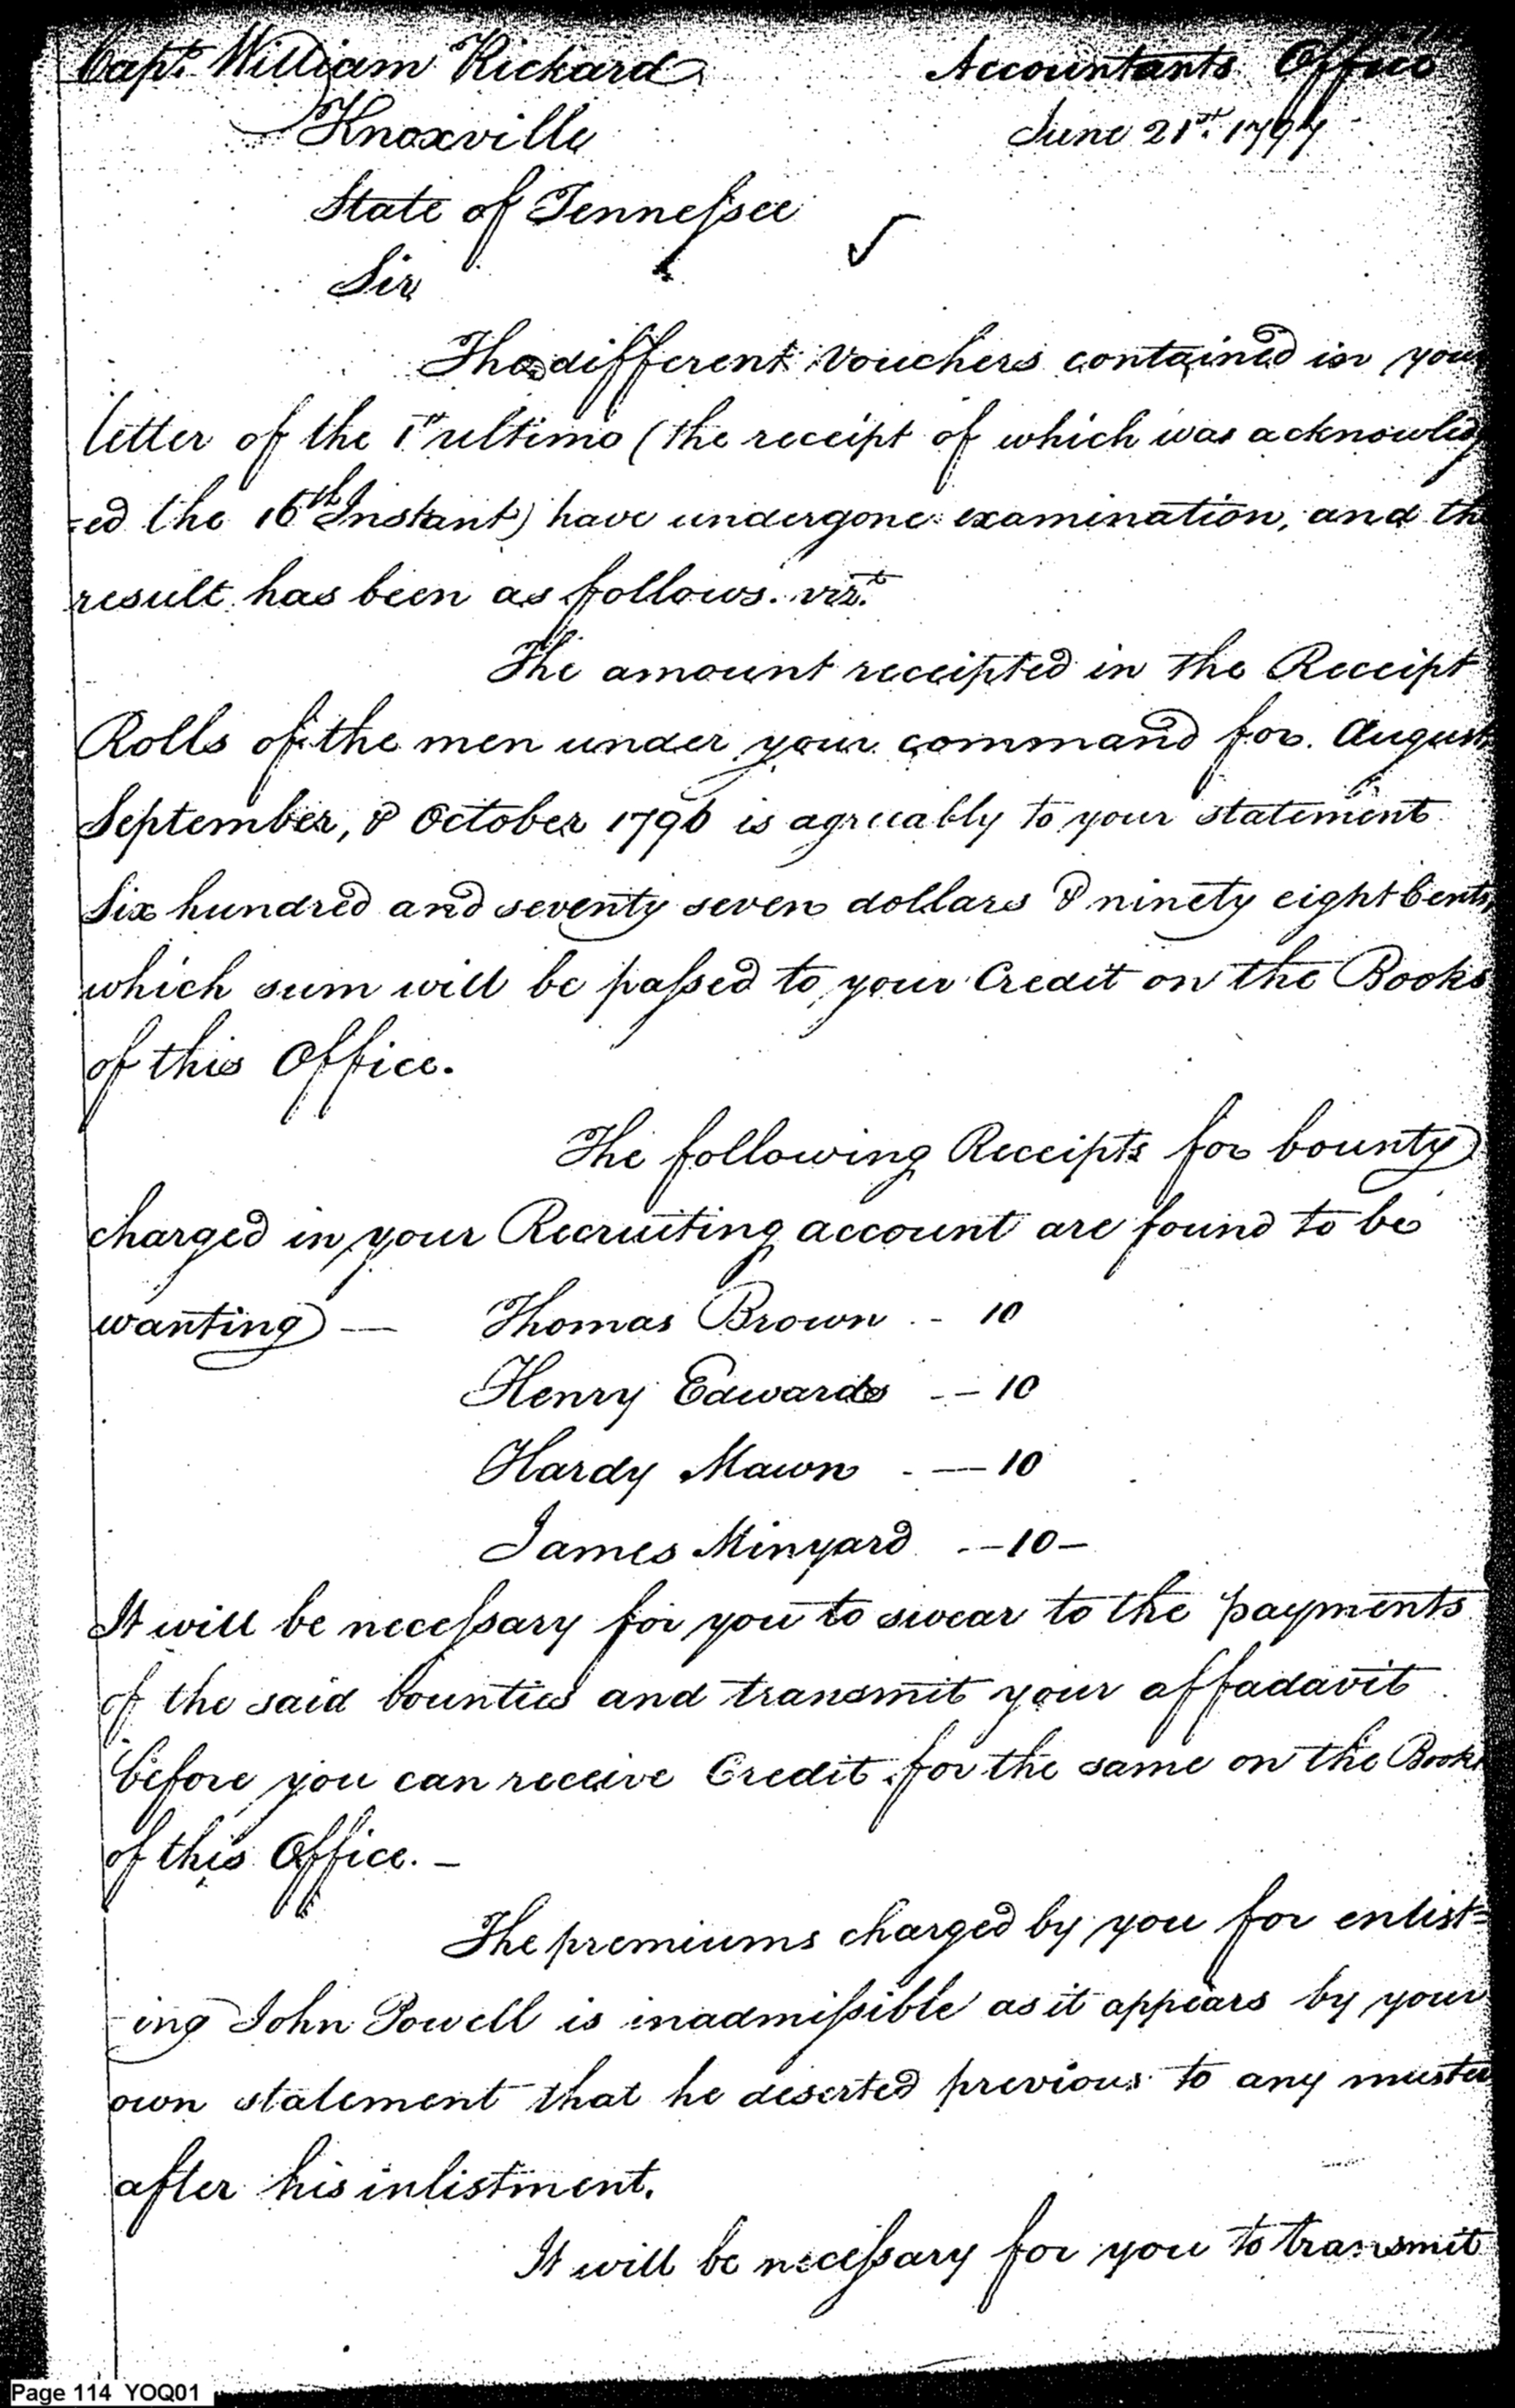 Capt. William Rickard
Accountants Office
Knoxville
June 21st. 1797
State of Tennessee
Sir
The different Vouchers contained in your
letter of the 1st ultimo (the receipt of which was acknowledg
=ed the 16th Instant) have undergone examination, and the
result has been as follows. vizt.
The amount receipted in the Receipt
Rolls of the men under your command for August,
September, & October 1796 is agreeably to your statement
Six hundred and seventy seven dollars & ninety eight Cents,
which sum will be passed to your Credit on the Books
of this Office.
The following Receipts for bounty
charged in your Recruiting account are found to be
wanting — Thomas Brown . - 10
Henry Edwards - — 10
Hardy Mawn . — 10
James Minyard . — 10 —
It will be necessary for you to swear to the payments
of the said bounties and transmit your affadavit
before you can receive Credit for the same on the Books
of this Office. —
The premiums charged by you for enlist=
-ing John Powell is inadmissible as it appears by your
own statement that he deserted previous to any muster
after his inlistment.
It will be necessary for you to transmit
Page 114 YOQ01